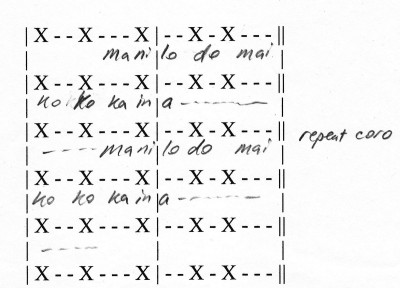 |X--X---X|--X-X---||
| mani|lo do mai |
|X--X---X|--X-X---||
|ko ko ka in a------- |
|X--X---X|--X-X---|| repeat coro
| ----mani|lo do mai |
|X--X---X|--X-X---||
|ko ko ka in|a------- |
|X--X---X|--X-X---||
| ---- | |
|X--X---X|--X-X---||